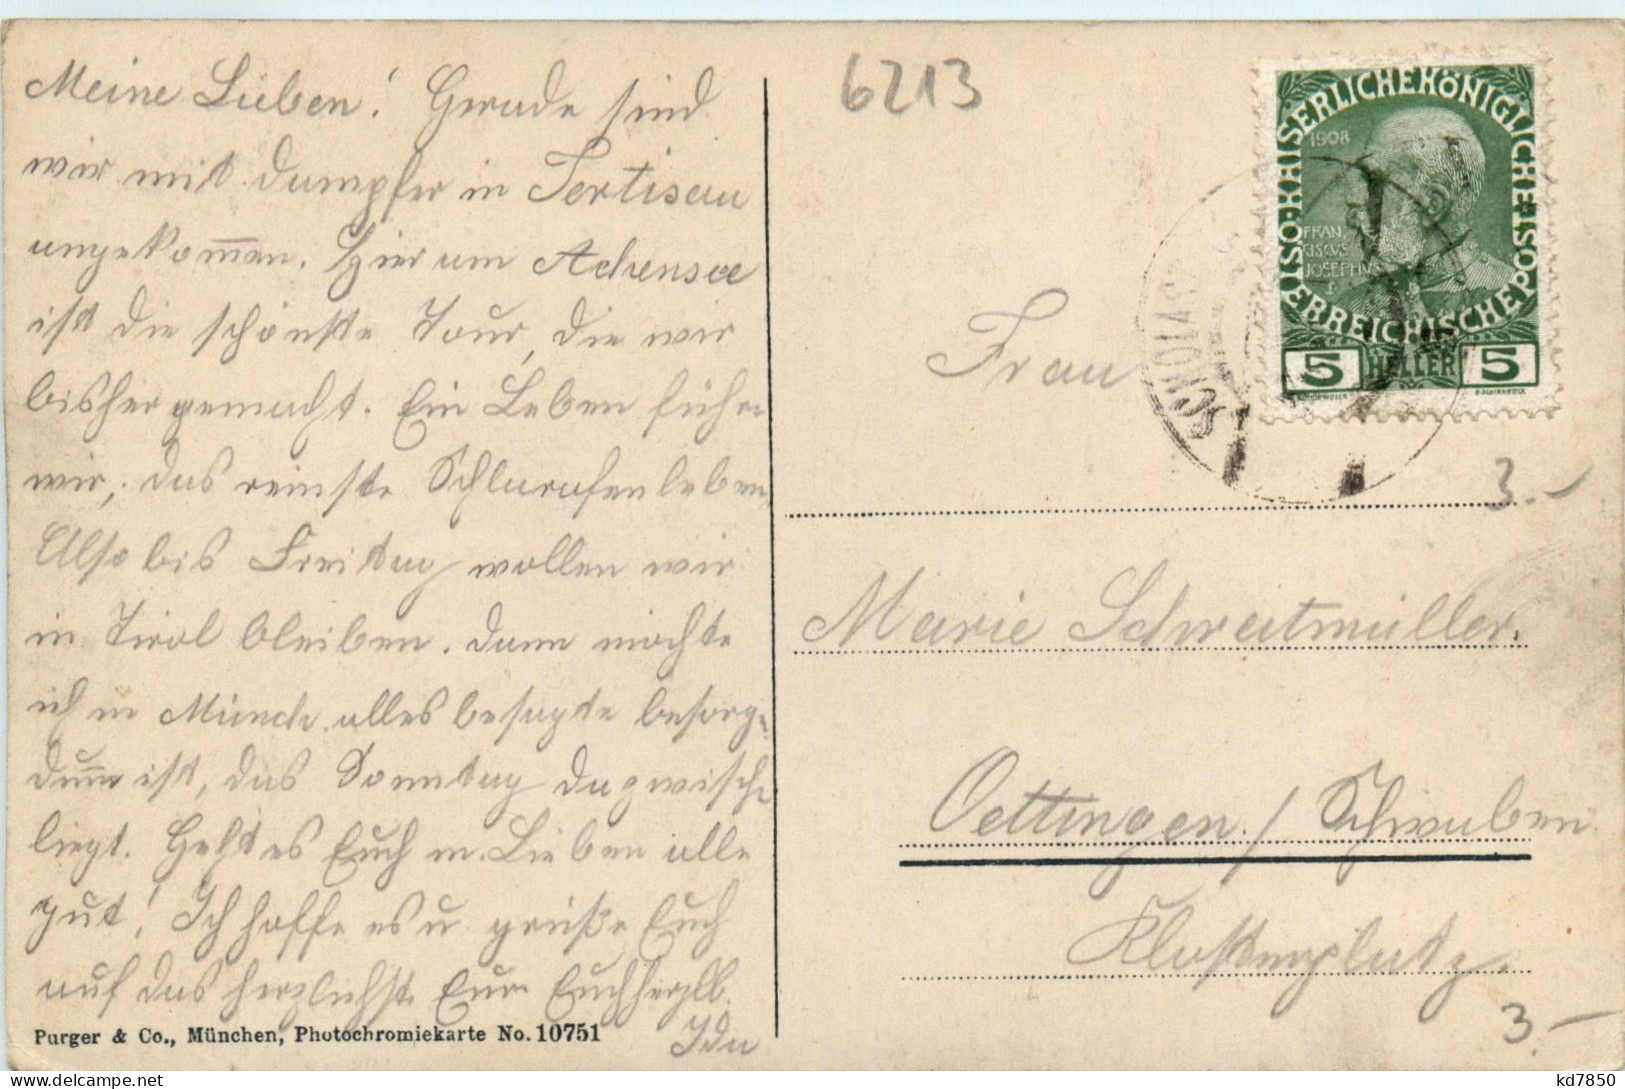 Meine Lieben! Gerade sind
wir mit Dampfer in Pertisau
angekom̅en. Hier am Achensee
ist die schönste Tour, die wir
bisher gemacht. Ein Leben führen
wir, das reinste Schlaraffenleben
Also bis Freitag wollen wir
in Tirol bleiben. Dann möchte
ich in Münch. alles besagte besorge
dum̅ ist, das Sonntag dazwische
liegt. Geht es Euch m. Lieben alle
gut! Ich hoffe es u. grüße Euch
auf das herzlichste Eure Euch herzlb.
Ida
Purger & Co., München, Photochromiekarte No. 10751
6213
KAISERLICHE KÖNIGLICHE ÖSTERREICHISCHE POST
1908
FRAN
CISCVS
JOSEPHVS
I
5 HELLER 5
Frau
3.-
Marie Schweitmüller.
Oettingen / Schwaben
Klosterplatz.
3.-
kd7850